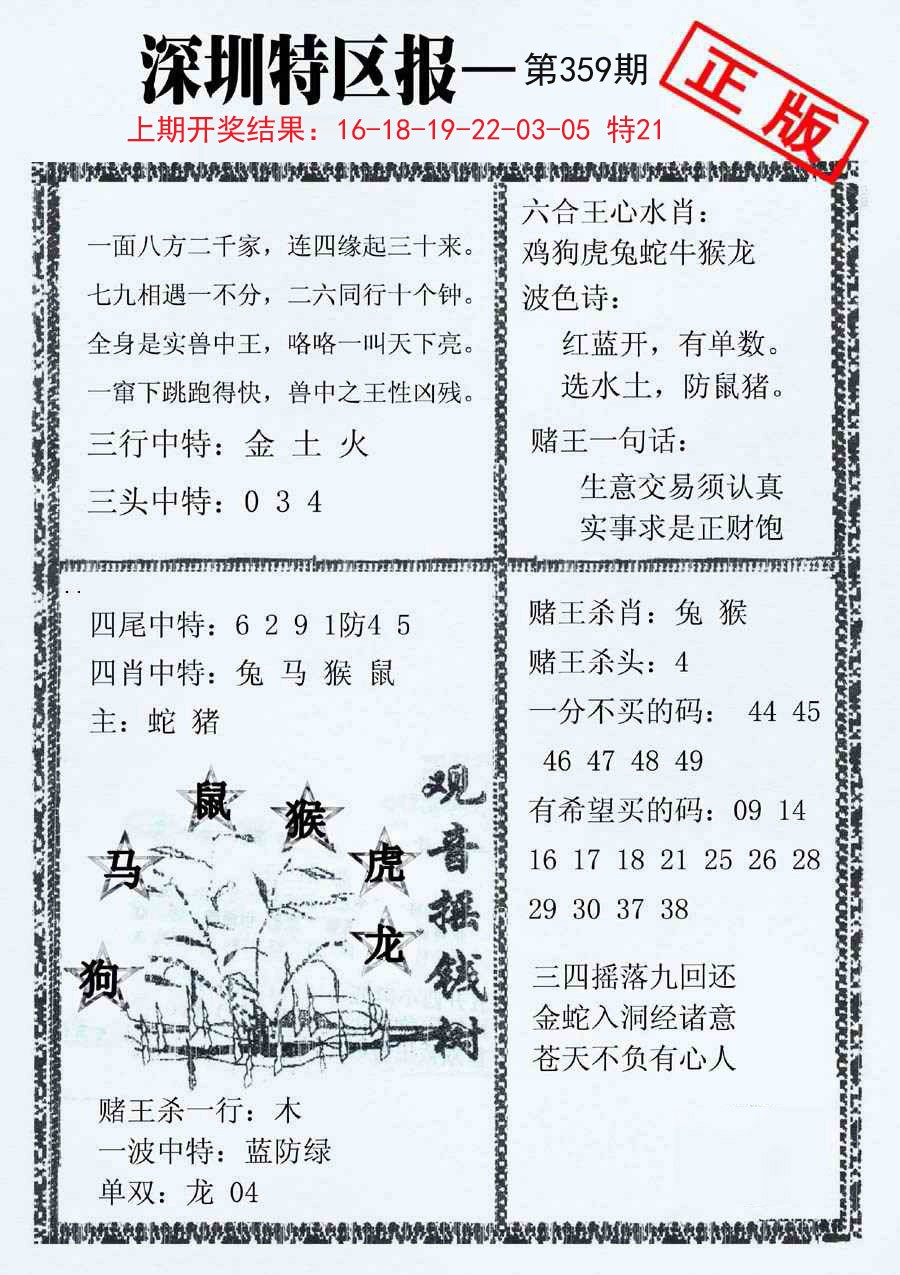 深圳特区报—第359期
正版
上期开奖结果：16-18-19-22-03-05 特21
一面八方二千家，连四缘起三十来。
七九相遇一不分，二六同行十个钟。
全身是实兽中王，咯咯一叫天下亮。
一窜下跳跑得快，兽中之王性凶残。
三行中特：金 土 火
三头中特：0 3 4
六合王心水肖：
鸡狗虎兔蛇牛猴龙
波色诗：
红蓝开，有单数。
选水土，防鼠猪。
赌王一句话：
生意交易须认真
实事求是正财饱
四尾中特：6 2 9 1防4 5
四肖中特：兔 马 猴 鼠
主：蛇 猪
鼠
猴
马
虎
龙
狗
观音摇钱树
赌王杀一行：木
一波中特：蓝防绿
单双：龙 04
赌王杀肖：兔 猴
赌王杀头：4
一分不买的码： 44 45
46 47 48 49
有希望买的码：09 14
16 17 18 21 25 26 28
29 30 37 38
三四摇落九回还
金蛇入洞经诸意
苍天不负有心人